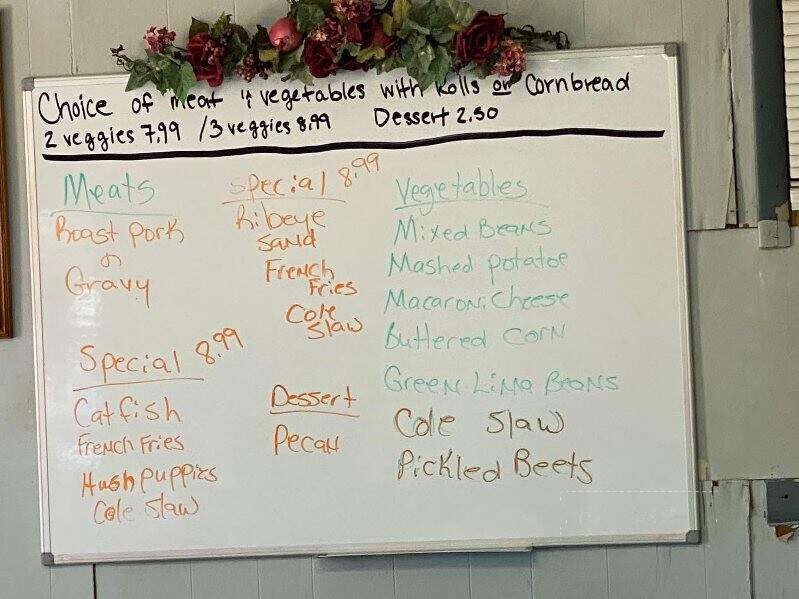 Choice of meat & vegetables with Rolls or Cornbread
2 veggies 7.99 / 3 veggies 8.99 Dessert 2.50
Meats
Roast Pork
n
Gravy
Special 8.99
Catfish
French Fries
Hush puppies
Cole Slaw
Special 8.99
Ribeye
Sand
French
Fries
Cole
Slaw
Dessert
Pecan
Vegetables
Mixed Beans
Mashed Potatoe
Macaroni Cheese
Buttered Corn
Green Lima Beans
Cole Slaw
Pickled Beets